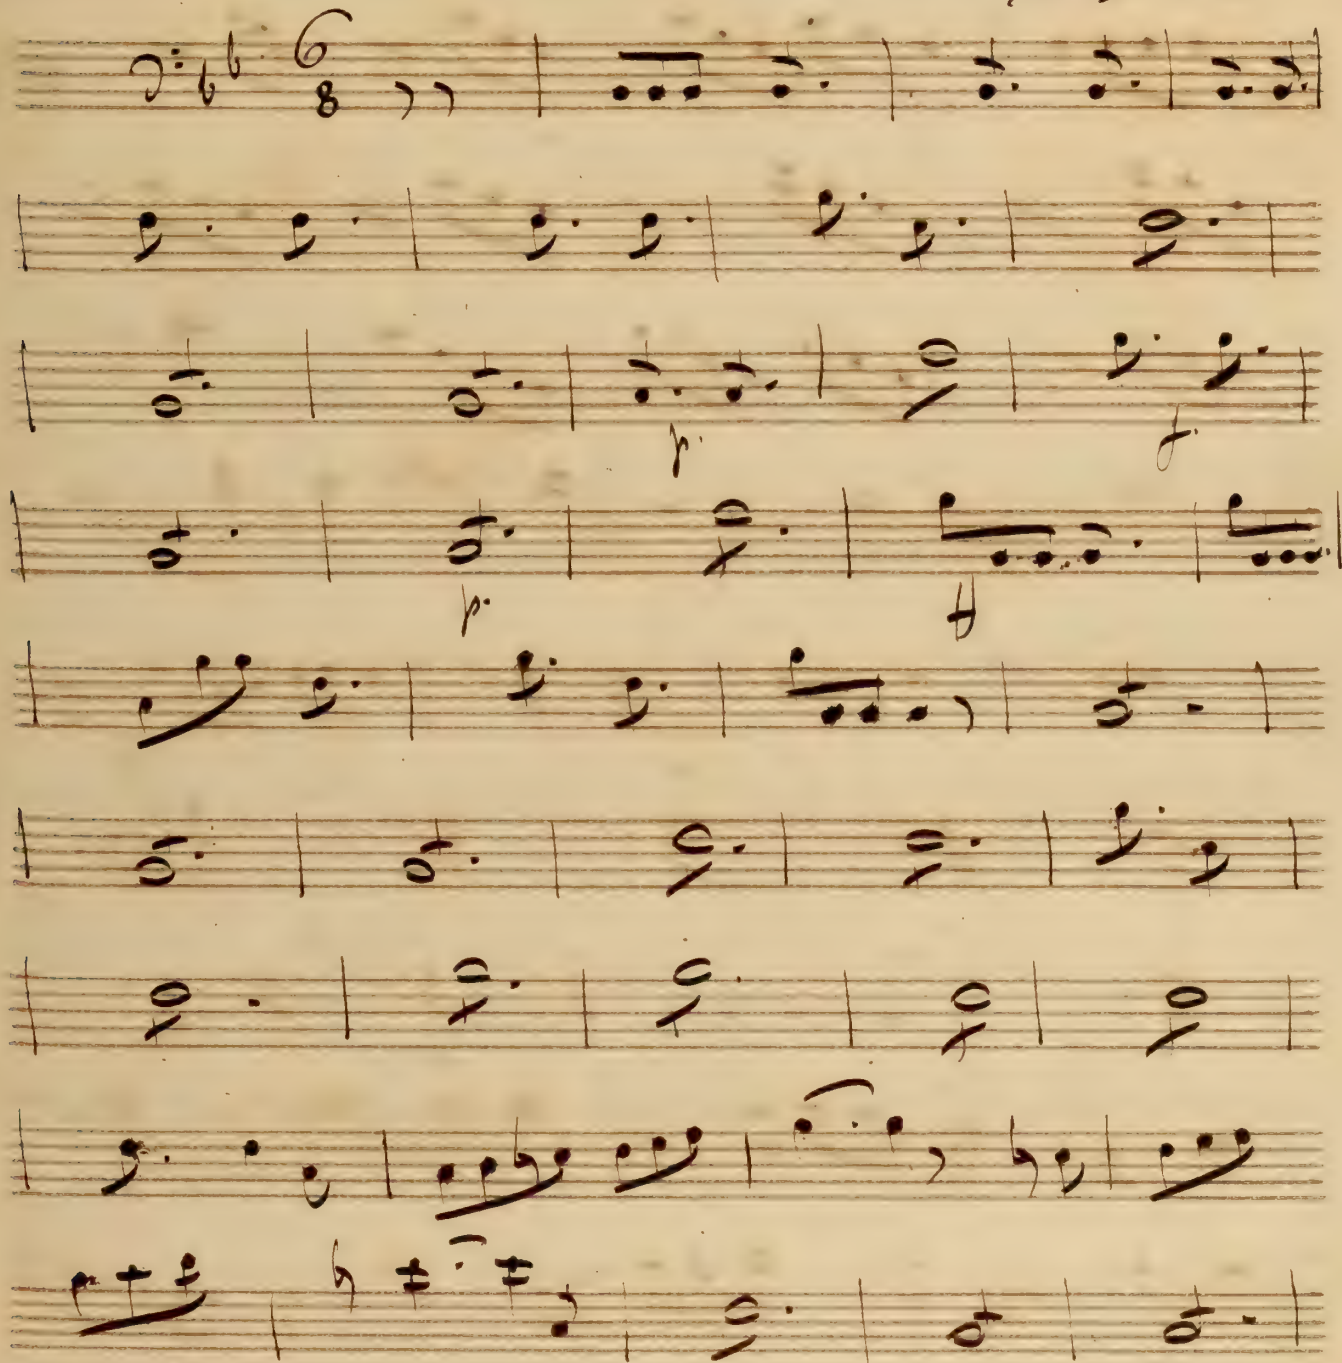 6
8
p. f.
p. ff